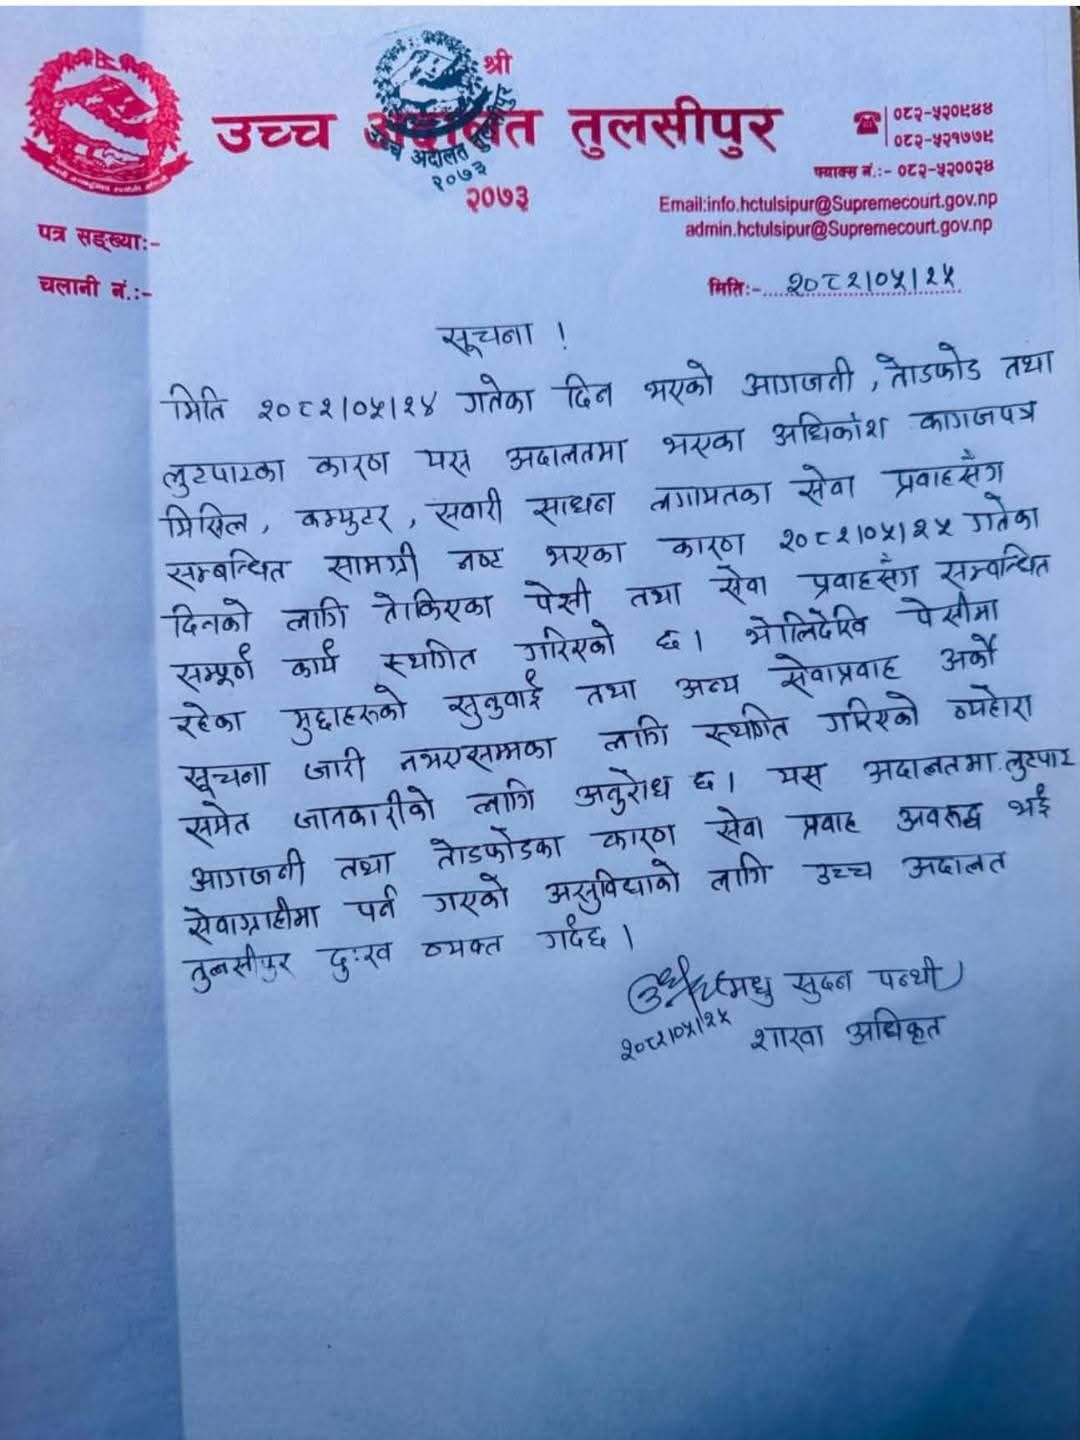 श्री
उच्च अदालत तुलसीपुर
२०७३
उच्च अदालत तुलसीपुर
२०७३
☎ ०८२-५२०९४४
०८२-५२१७७९
फ्याक्स नं.:- ०८२-५२००२४
Email:info.hctulsipur@Supremecourt.gov.np
admin.hctulsipur@Supremecourt.gov.np
पत्र सङ्ख्या:-
चलानी नं.:-
मिति:- २०८२।०५।२५
सूचना !
मिति २०८२।०५।२४ गतेका दिन भएको आगजनी, तोडफोड तथा
लुटपाटका कारण यस अदालतमा भएका अधिकांश कागजपत्र
मिसिल, कम्युटर, सवारी साधन लगायतका सेवा प्रवाहसँग
सम्बन्धित सामग्री नष्ट भएका कारण २०८२।०५।२५ गतेका
दिनको लागि तोकिएका पेसी तथा सेवा प्रवाहसँग सम्वन्धित
सम्पूर्ण कार्य स्थगित गरिएको छ। भोलिदेखि पेसीमा
रहेका मुद्दाहरूको सुनुवाई तथा अन्य सेवाप्रवाह अर्को
सूचना जारी नभएसम्मका लागि स्थगित गरिएको व्यहोरा
समेत जानकारीको लागि अनुरोध छ। यस अदालतमा लुटपाट
आगजनी तथा तोडफोडका कारण सेवा प्रवाह अवरुद्ध भई
सेवाग्राहीमा पर्न गएको असुविधाको लागि उच्च अदालत
तुलसीपुर दुःख व्यक्त गर्दछ।
मधु सुदन पन्थी
२०८२।०५।२५
शाखा अधिकृत